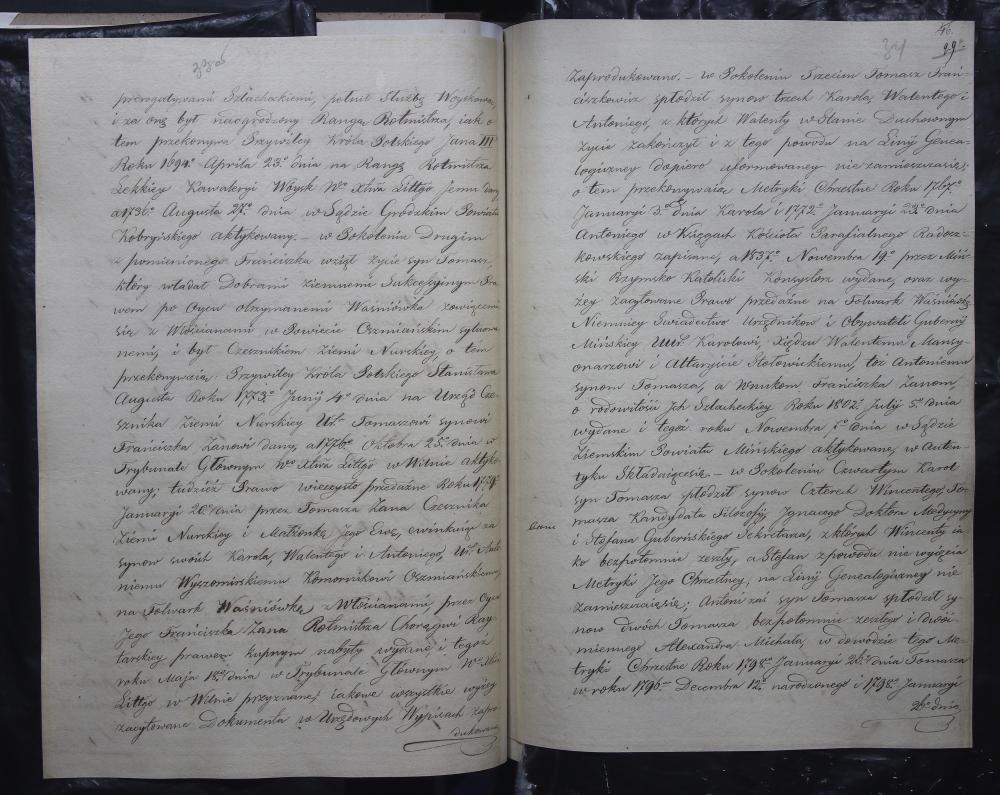 prerogatywami Szlacheckiemi, pełnił Służbę Woyskową,
i za onę był naogrodzony Rangą Rotmistrza, iak o
tem przekonywa Przywiley Króla Polskiego Jana III
Roku 1694º Aprila 23º dnia na Rangę Rotmistrza
Lekkiey Kawaleryi Woysk Wº Xtwa Littgo Jemu dany
a 1736º Augusta 27º dnia w Sądzie Grodzkim Powiatu
Kobryńskiego aktykowany. – w Pokoleniu Drugim
z pomienionego Franciszka wziął życie syn Tomasz,
który władał Dobrami Ziemnemi Sukcessyinym Pra-
wem po Oycu otrzymanemi Waśniówka zowiącemi
się z Włościanami w Powiecie Oszmiańskim sytuowa-
nemi, i był Czesznikiem Ziemi Nurskiey, o tém
przekonywaią: Przywiley Króla Polskiego Stanisława
Augusta Roku 1773º Junij 4º dnia na Urząd Cze-
sznika Ziemi Nurskiey Ur. Tomaszowi synowi
Franciszka Zanowi dany, a 1776º Oktobra 25º dnia w
Trybunale Głównym Wº Xtwa Littgo w Wilnie aktyko-
wany; tudzież Prawo wieczysto przedażne Roku
Januaryi 26º dnia przez Tomasza Zana Czesznika
Ziemi Nurskiey i Małżonkę Jego Ewę, ewinkuiąc za
synow swoich Karola, Walentego i Antoniego, Ur. Anto-
niemu Wyszomirskiemu Komornikowi Oszmiańskiemu,
na Folwark Waśniówkę z Włościanami, przez Oyca
Jego Franciszka Zana Rotmistrza Chorągwi Ray-
tarskiey prawem kupnym nabyty wydane, i tegoż
roku Maja 18º dnia w Trybunale Głównym Wº Xtwa
Littgo w Wilnie przyznane; iakowe wszystkie wyżey
zacytowane Dokumenta w Urzędowych Wypisach zapro-
dukowano
34
46
29
Zaprodukowano. – w Pokoleniu Trzecim Tomasz Fran-
ciszkowicz spłodził synow trzech Karola, Walentego i
Antoniego, z których Walenty w Stanie Duchownym
życie zakończył i z tego powodu na Liniy Genea-
logiczney dopiero uformowaney nie zamieszcza się;
o tem przekonywaią Metryki Chrzestne Roku 1767º
Januaryi 3º dnia Karola i 1772º Januaryi 23º dnia
Antoniego w Xięgach Kościoła Parafialnego Radosz-
kowskiego zapisane, a 1837º Novembra 19º przez Miń-
ski Rzymsko Katolicki Konsystorz wydane, oraz wy-
żey zacytowane Prawo przedażne na Folwark Waśniówkę
Niemniey Swiadectwo Urzędnikow i Obywateli Gubernij
Mińskiey Uur. Karolowi, Xiędzu Walentemu Mansy-
onarzowi i Altaryście Stołowickiemu, toż Antoniemu
synom Tomasza, a Wnukom Franciszka Zanom,
o rodowitości Ich Szlacheckiey Roku 1802º Julij 5º dnia
wydane i tegoż roku Nowembra 1º dnia w Sądzie
Ziemskim Powiatu Mińskiego aktykowane, w Auten-
tyku Składaiącesię. – w Pokoleniu Czwartym Karol
syn Tomasza spłodził synow Czterech Wincentego, To-
masza Kandydata Filozofij, Ignacego Doktora Medycyny
i Stefana Guberńskiego Sekretarza, z których Wincenty ia-
ko bezpotomnie zeszły, a Stefan z powodu nie wyięcia
Metryki Jego Chrzestney, na Liniy Genealogiczney nie
zamieszcza się; Antoni zaś syn Tomasza spłodził sy-
now dwóch Tomasza bezpotomnie zeszłego i dwói-
miennego Alexandra Michała, w dowodzie tego Me-
tryki Chrzestne Roku 1798º Januaryi 26º dnia Tomasza
w roku 1796º Decembra 12º narodzonego i 1798º Januaryi
26º dnia